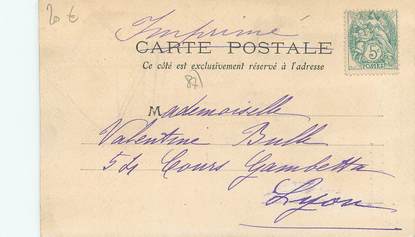 20 €
Imprimé
CARTE POSTALE
Ce côté est exclusivement réservé à l'adresse
87
Mademoiselle
Valentine Bulle
54 Cours Gambetta
Lyon
5
POSTES